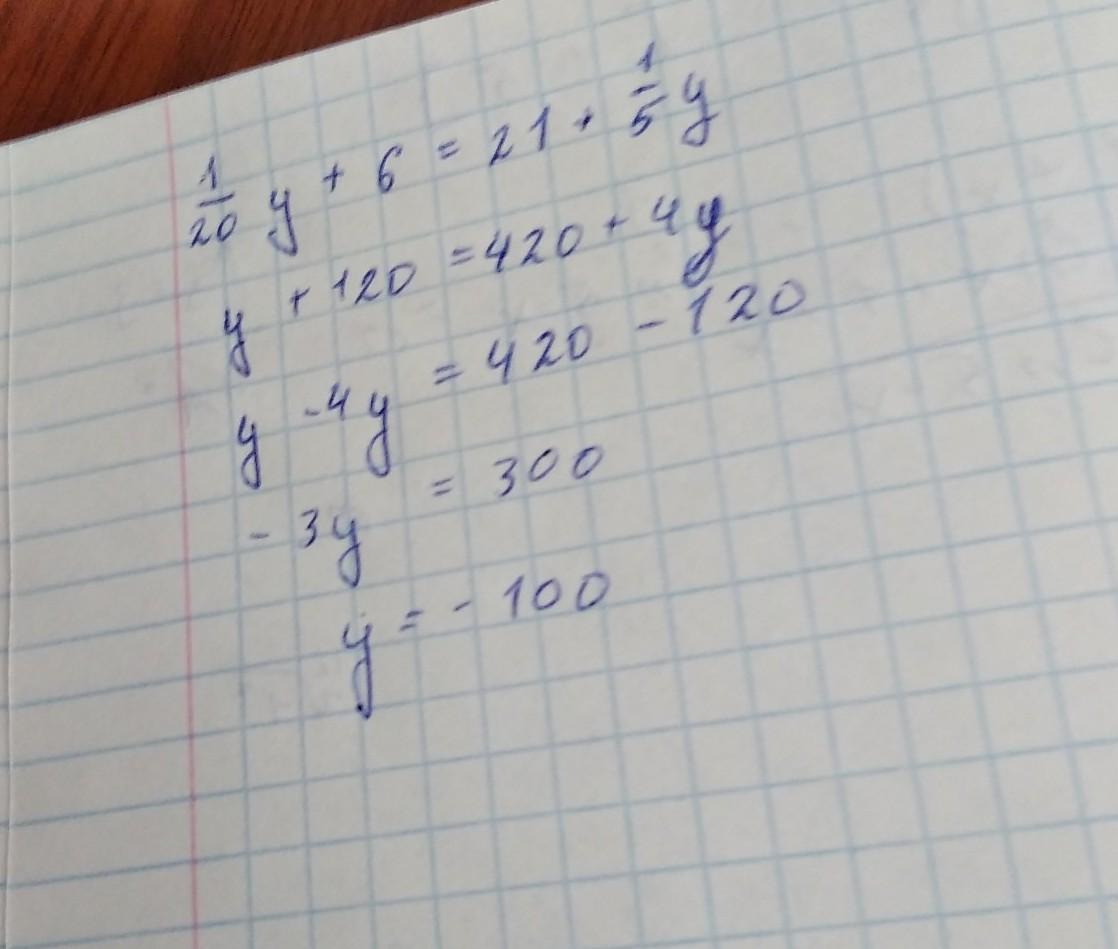 1/20 y + 6 = 21 + 1/5 y
y + 120 = 420 + 4y
y - 4y = 420 - 120
- 3y = 300
y = - 100